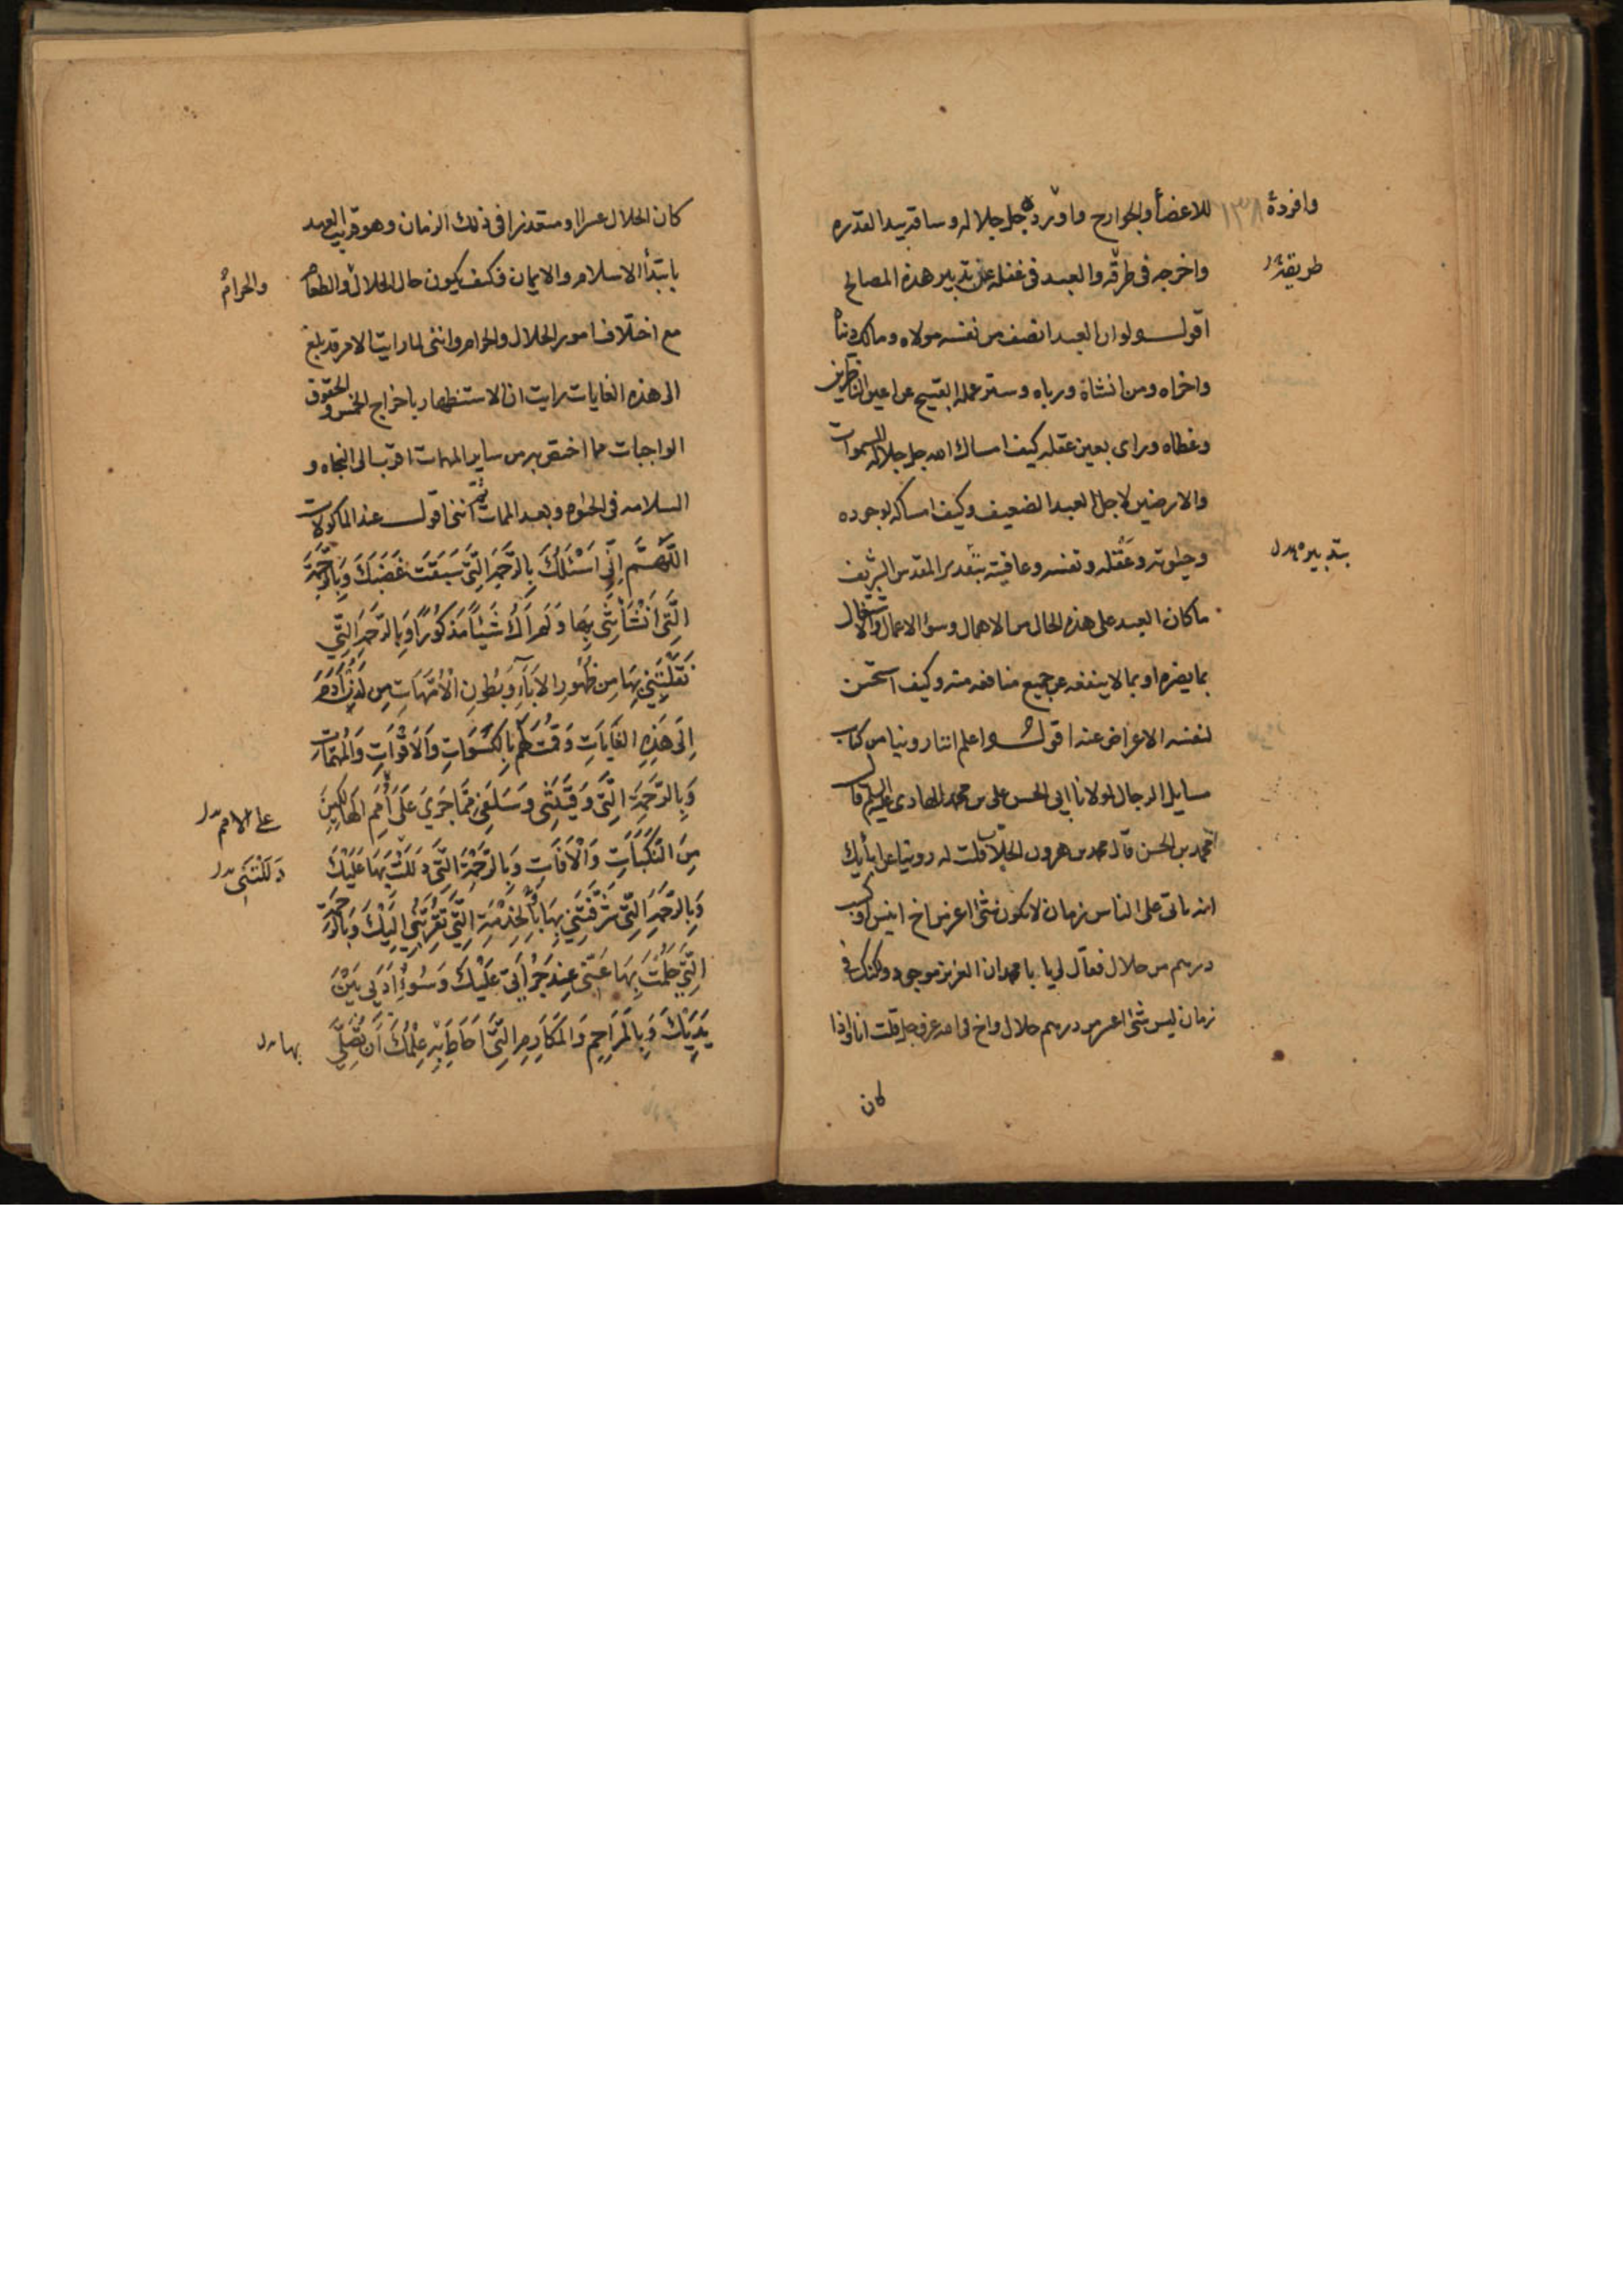 للاعضأ والجوارح وما ورده جل جلاله وساقه بيد القدره
وافرده
١٣٨
واخرجه فى طرقه والعبد فى غفلة عن تدبير هذه المصالح
طريقه
اقول ولو ان العبد انصف من نفسه مولاه ومالك دنياه
واخراه ومن انشاة ورباه وستر عمله القبيح عن اعين الناظرين
وغطاه وراى بعين عقله كيف امساك الله جل جلاله السموات
والارضين لاجل العبد الضعيف وكيف امساكه لوجوده
وحيوته وعقله ونفسه وعافيته بتقدير المقدس الشريف
بتدبيره
ما كان العبد على هذه الحال من الاهمال وسؤ الاعمال والاشتغال
بما يضره او بما لا ينفعه عن جميع منافعه منه وكيف استحسن
لنفسه الاعراض عنه اقول واعلم اننا روينا من كتاب
مسايل الرجال لمولانا ابى الحسن على بن محمد الهادى عليه السلم قال
محمد بن الحسن قال محمد بن هرون الجلاب قلت له روينا عن ابأيك
انه ياتى على الناس زمان لا يكون شئ اعز من اخ انيس او كسب
درهم من حلال فقال لى يا با محمد ان العزيز موجود ولكنك فى
زمان ليس شئ اعسر من درهم حلال واخ فى الله عز وجل قلت انا واذا
كان
كان الحلال عسرا ومتعذرا فى ذلك الزمان وهو قريب العهد
بابتدأ الاسلام والايمان فكيف يكون حال الحلال والطعام
والحرام
مع اختلاف امور الحلال والحرام واننى لما رايت الامر قد بلغ
الى هذه الغايات رايت ان الاستظهار باخراج الخمس والحقوق
الواجبات مما اختص به من ساير المهمات اقرب الى النجاه و
السلامه فى الحيوه وبعد الممات ثم اننى اقول عند الماكولات
اللَّهُمَّ اِنِّى اَسْئَلُكَ بِالرَّحْمَةِ الَّتِى سَبَقَتْ غَضَبَكَ وَبِالرَّحْمَةِ
الَّتِى اَنْشَأْتَنِى بِهَا وَلَمْ اَكُ شَيْئاً مَذْكُوراً وَبِالرَّحْمَةِ الَّتِى
نَقَلْتَنِى بِهَا مِن ظُهُورِ الاۤبَآءِ وَبُطُونِ الْاُمَّهَاتِ مِن لَدُنْ اۤدَمَ
اِلَى هَذِهِ الغَايَاتِ وَقُمْتَ لَهُمْ بِالكِسْوَاتِ وَالاَقْوَاتِ وَالْمُهِمَّاتِ
وَبِالرَّحْمَةِ الَّتِى وَقَيْتَنِى وَسَلَفِى مِمَّا جَرَى عَلَى اُمَمِ الهَالِكِينَ
على الامم
مِنَ النَّكَبَاتِ وَالْاۤفَاتِ وَبِالرَّحْمَةِ الَّتِى دَلَلْتَ بِهَا عَلَيْكَ
دَلَلْتَنِى
وَبِالرَّحْمَةِ الَّتِى شَرَّفْتَنِى بِهَا بِالْخِدْمَةِ الَّتِى تُقَرِّبُنِى اِلَيْكَ وَبِالرَّحْمَةِ
الَّتِى حَلُمْتَ بِهَا عَنِّى عِنْدَ جُرْأَتِى عَلَيْكَ وَسُوءِ اَدَبِى بَيْنَ
يَدَيْكَ وَبِالْمَرَاحِمِ وَالمَكَارِمِ الَّتِى اَحَاطَ بِهِ عِلْمُكَ اَنْ تُصَلِّىَ
بها